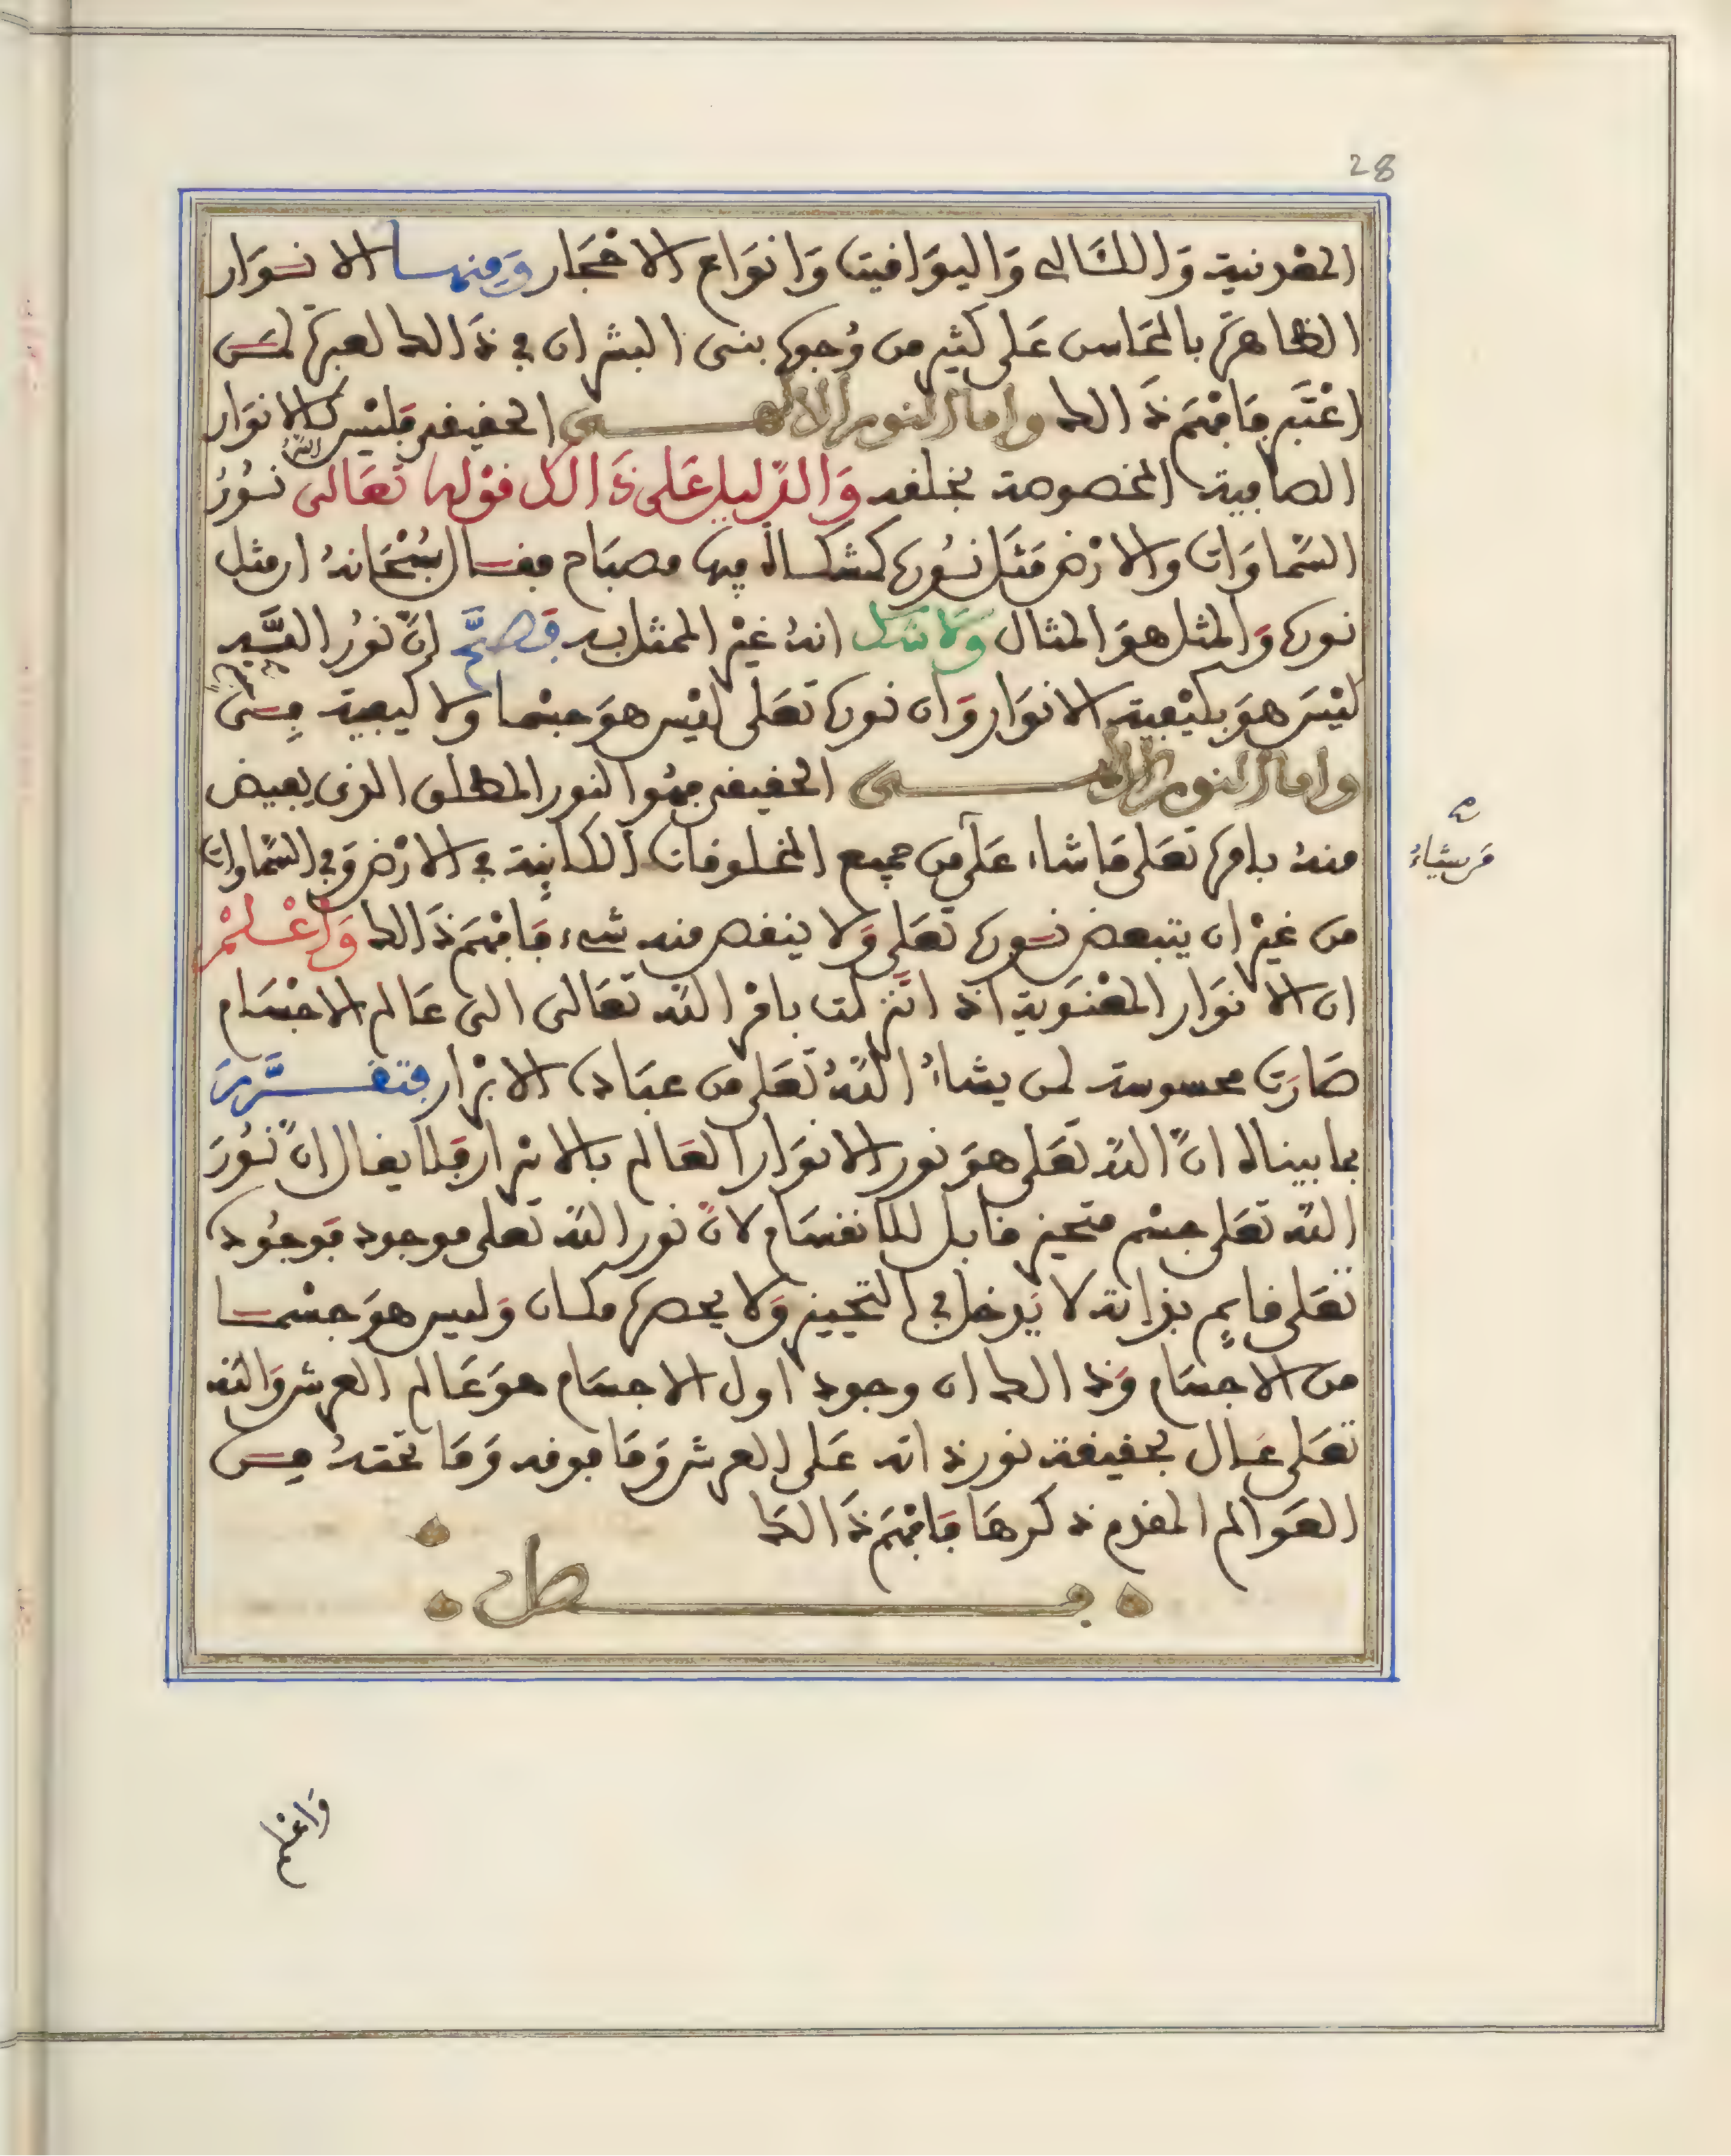 28
المعدنية وَاللئالى وَاليوَاقيت وَانوَاع الاحْجَار وَمنهــا الانــوَار
الظاهرة بالمحَاسن عَلى كثير من وُجوه بنى البشر ان في ذَالك لعبرة لمــن
اعْتَبر فَافْهَم ذَالك وامَا النور الالهـــى الحقيقى فَليْس كالانوَار
الصافية المخصوصة بخلقه وَالدليل على ذَالك قوْله تعَالى اللهُ نــوُرُ
السمَاوَات والارْض مَثَل نــوُره كمشكــاة فيها مصبَاح فقــال سُبْحَانهُ ان مثل
نوره وَالمثل هوَ المثال وَلا شك انهُ غيْر الممثل به فَصَحَّ انَّ نورُ السيــد
ليْسَ هوَ بكيْفية الانوَار وَان نوره تعَلى ليْس هوَ جسْما ولا كيفية مِــن جسم
وامَا النور الالهـــى الحقيقى فهُوا النور المطلق الذى يفيض
منهُ بامره تعَلى مَا شاء عَلى مَن يشاءُ من جميع المخلوقات الكاينة في الارْض وَفي السمَاوات
من غيْر ان يتبعض نــوره تعَلى وَلا ينقص منه شىء فَافْهَم ذَالك وَاعْــلمْ
ان الانوَار المعْنوية اذ اتنزلت بامْر الله تعَالى الى عَالم الاجْسَام
صَارَت محسوسة لمن يشاءُ اللهُ تعَلى من عبَاده الابْرَار فتقــرَّرَ
بما بيناه انَّ اللهَ تعَلى هوَ نور الانوَار العَالم بالاسْرار فَلا يقال انَّ نــوُرَ
الله تعَلى جسْم متحيز قابل للانقسَام لانَّ نور الله تعلى موجود بوَجوُده
تعَلى قايم بذاته لا يَدخل في التحييز وَلا يحصره مكان وَليس هوَ جسْمــا
من الاجسَام وَذالك ان وجود اول الاجسَام هوَ عَالم العرش وَالله
تعَلى عَــال بحقيقة نور ذاته عَلى العرش وَمَا فوقه وَمَا تحْتهُ مِــن
العَوالم المقدم ذكرهَا فَافْهَم ذَالك
فــصل
وَاعْلم